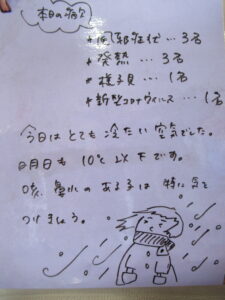 本日の病欠
*風邪症状…3名
*発熱…3名
*様子見…1名
*新型コロナウィルス…1名
今日はとても冷たい空気でした。
明日も10℃以下です。
咳、鼻水のある子は特に気を
つけましょう。